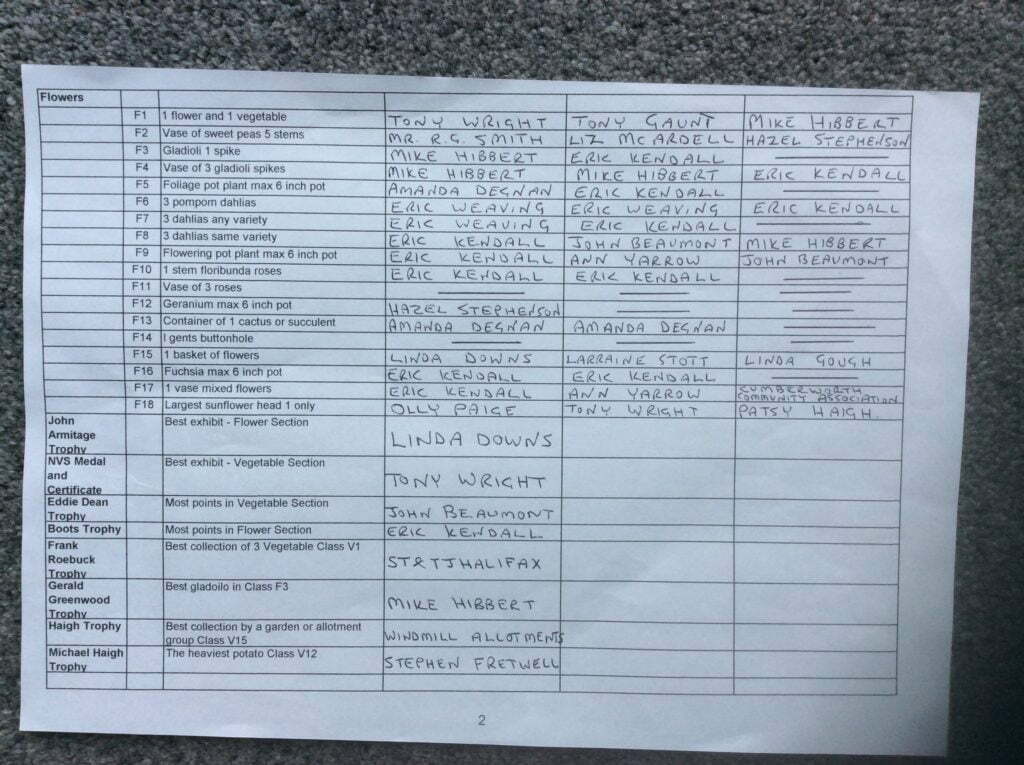 Flowers
F1 1 flower and 1 vegetable TONY WRIGHT TONY GAUNT MIKE HIBBERT
F2 Vase of sweet peas 5 stems MR. R.G. SMITH LIZ MCARDELL HAZEL STEPHENSON
F3 Gladioli 1 spike MIKE HIBBERT ERIC KENDALL
F4 Vase of 3 gladioli spikes MIKE HIBBERT MIKE HIBBERT ERIC KENDALL
F5 Foliage pot plant max 6 inch pot AMANDA DEGNAN ERIC KENDALL
F6 3 pompom dahlias ERIC WEAVING ERIC WEAVING ERIC KENDALL
F7 3 dahlias any variety ERIC WEAVING ERIC KENDALL
F8 3 dahlias same variety ERIC KENDALL JOHN BEAUMONT MIKE HIBBERT
F9 Flowering pot plant max 6 inch pot ERIC KENDALL ANN YARROW JOHN BEAUMONT
F10 1 stem floribunda roses ERIC KENDALL ERIC KENDALL
F11 Vase of 3 roses
F12 Geranium max 6 inch pot HAZEL STEPHENSON
F13 Container of 1 cactus or succulent AMANDA DEGNAN AMANDA DEGNAN
F14 I gents buttonhole
F15 1 basket of flowers LINDA DOWNS LARRAINE STOTT LINDA GOUGH
F16 Fuchsia max 6 inch pot ERIC KENDALL ERIC KENDALL
F17 1 vase mixed flowers ERIC KENDALL ANN YARROW CUMBERWORTH COMMUNITY ASSOCIATION
F18 Largest sunflower head 1 only OLLY PAIGE TONY WRIGHT PATSY HAIGH.
John Best exhibit - Flower Section
Armitage LINDA DOWNS
Trophy
NVS Medal Best exhibit - Vegetable Section
and TONY WRIGHT
Certificate
Eddie Dean Most points in Vegetable Section
Trophy JOHN BEAUMONT
Boots Trophy Most points in Flower Section ERIC KENDALL
Frank Best collection of 3 Vegetable Class V1
Roebuck ST&TJHALIFAX
Trophy
Gerald Best gladoilo in Class F3
Greenwood MIKE HIBBERT
Trophy
Haigh Trophy Best collection by a garden or allotment
group Class V15 WINDMILL ALLOTMENTS
Michael Haigh The heaviest potato Class V12
Trophy STEPHEN FRETWELL
2